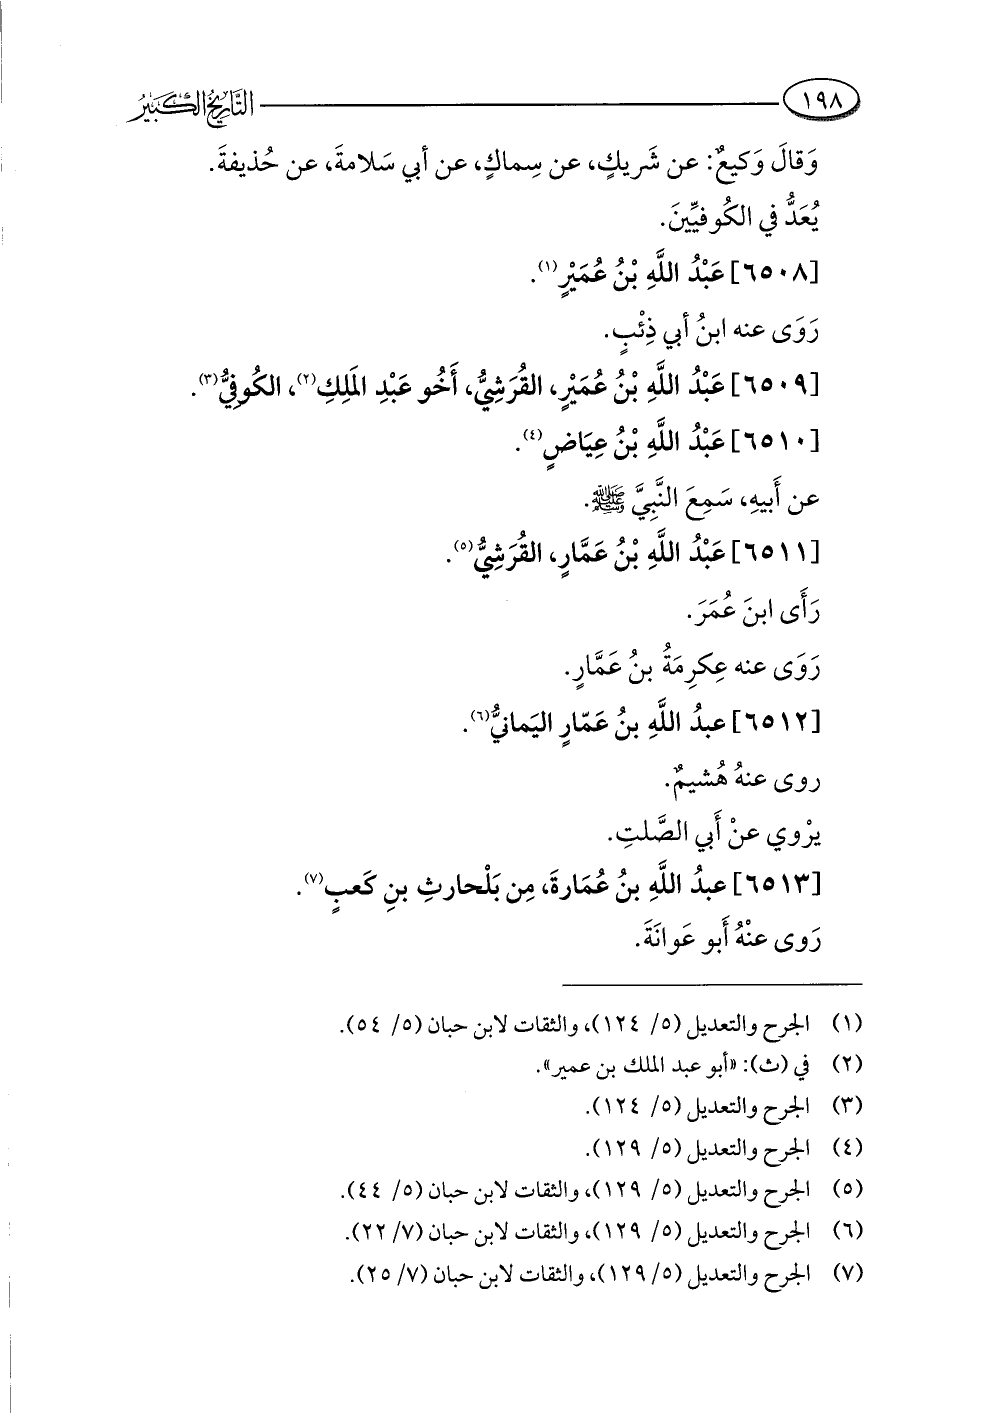 ١٩٨
التاريخ الكبير
وَقالَ وَكيعٌ: عن شَريكٍ، عن سِماكٍ، عن أبي سَلامةَ، عن حُذيفةَ.
يُعَدُّ في الكُوفيِّينَ.
[٦٥٠٨] عَبْدُ اللَّهِ بْنُ عُمَيْرٍ(١).
رَوَى عنه ابنُ أبي ذِئْبٍ.
[٦٥٠٩] عَبْدُ اللَّهِ بْنُ عُمَيْرٍ، القُرَشِيُّ، أَخُو عَبْدِ المَلِكِ(٢)، الكُوفِيُّ(٣).
[٦٥١٠] عَبْدُ اللَّهِ بْنُ عِيَاضٍ(٤).
عن أَبيهِ، سَمِعَ النَّبِيَّ ﷺ.
[٦٥١١] عَبْدُ اللَّهِ بْنُ عَمَّارٍ، القُرَشِيُّ(٥).
رَأَى ابنَ عُمَرَ.
رَوَى عنه عِكرِمَةُ بنُ عَمَّارٍ.
[٦٥١٢] عبدُ اللَّهِ بنُ عَمّارٍ اليَمانيُّ(٦).
روى عنهُ هُشيمٌ.
يرْوي عنْ أَبي الصَّلتِ.
[٦٥١٣] عبدُ اللَّهِ بنُ عُمَارةَ، مِن بَلْحارثِ بنِ كَعبٍ(٧).
رَوى عنْهُ أَبو عَوانَةَ.
(١) الجرح والتعديل (٥/ ١٢٤)، والثقات لابن حبان (٥/ ٥٤).
(٢) في (ث): «أبو عبد الملك بن عمير».
(٣) الجرح والتعديل (٥/ ١٢٤).
(٤) الجرح والتعديل (٥/ ١٢٩).
(٥) الجرح والتعديل (٥/ ١٢٩)، والثقات لابن حبان (٥/ ٤٤).
(٦) الجرح والتعديل (٥/ ١٢٩)، والثقات لابن حبان (٧/ ٢٢).
(٧) الجرح والتعديل (٥/ ١٢٩)، والثقات لابن حبان (٧/ ٢٥).